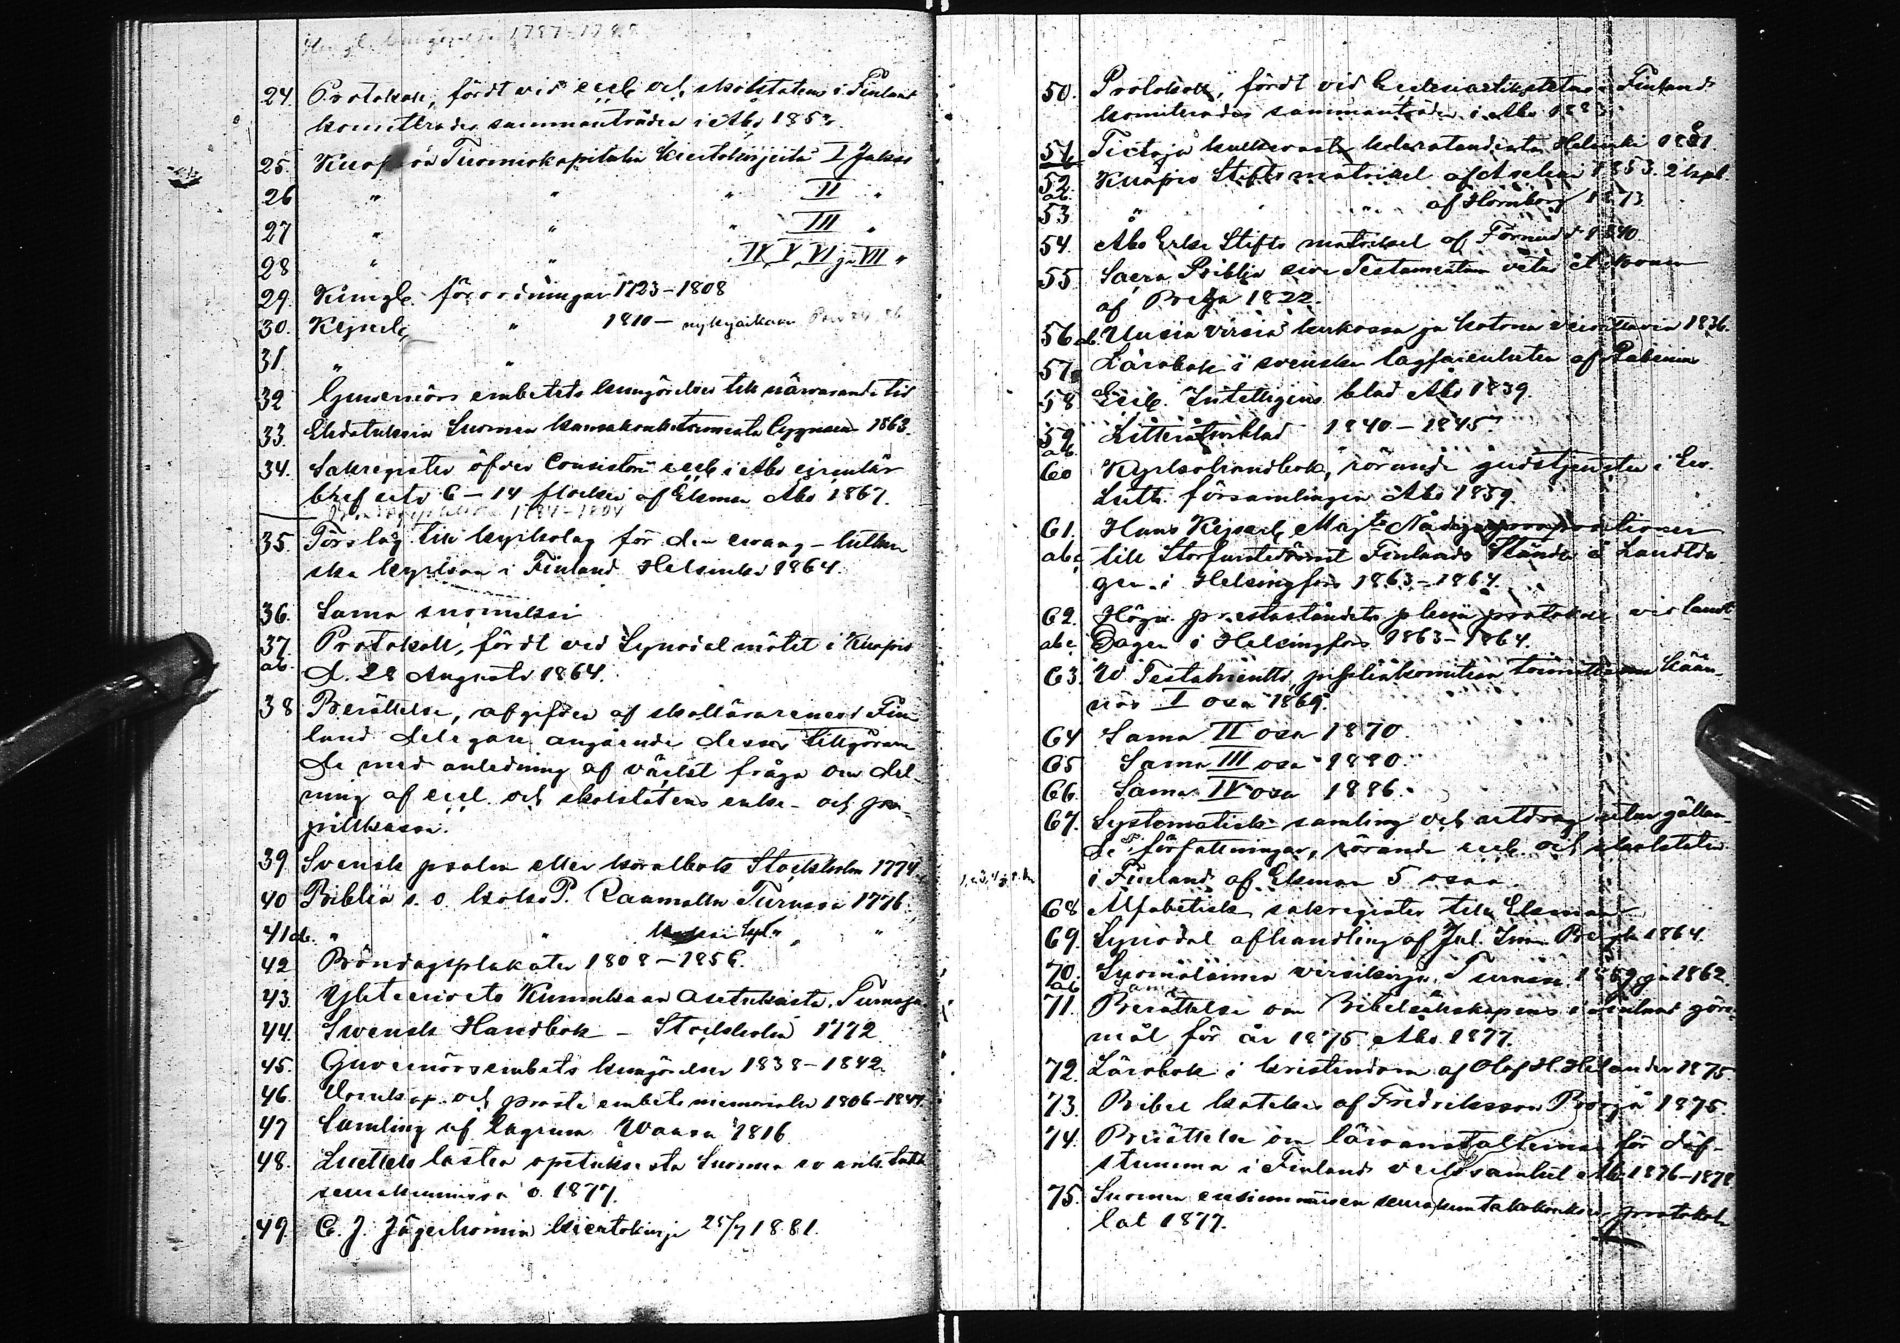 1787-17
24. Protokoll, fördt vid eccl. och skolstatens i Finland
komiterades sammanträden i Åbo 185
25. Kuopion Tuomiokapitulin kiertokirjeitä I Jakso
26 " " " II "
27 " " " III "
28 " " IV, V, VI ja VII "
29. Kungl. förordningar 1723-1808
30. Kejserl. " 1810 - nykyaikaan
31. " "
32 Guvernörs embetets kungörelser till närvarande tid
33. Ehdotuksia Suomen kansakoulutoimesta Cygnaeus 1863.
34. Sakregister öfver Consistorii eccl. i Åbo cirkulär
bref 6-14 flocken af Ekman Åbo 1867.
1784-1804
35 Förslag till kyrkolag för den evang-luther
ska kyrkan i Finland Helsinki 1864.
36. Sama suomeksi
37 ab. Protokoll, fördt ved Synodalmötet i Kuopio
d. 28 Augusti 1864.
38 Berättelse, afgifven af skollärarenes i Fin
land delegare angående desses tillgöran
de med anledning af väckt fråga om del
ning af eccl. och skolstatens enke- och pu-
pillkassa.
39 Svensk psalm eller koralbok Stockholm 1774
40 Biblia s. o. koko P. Raamattu Turussa 1776.
41 ab. " " "
42 Böndagsplakater 1808-1856.
43. Yhteenveto Kunnallisasetuksista. Turussa.
44. Swensk Handbok - Stockholm 1772
45. Guvernörsembets kungörelser 1838-1842.
46. Domkap. och prosteembets memorialer 1806-1844.
47 Samling af lagrum Waasa 1816
48. Luettelo lasten opetuksesta Suomen ev. lutk.
seurakunnissa v. 1877.
49. C. J. Jägerhornin kiertokirje 25/7 1881.
50. Protokoll, fördt vid Ecclesiastikstatens i Finland
komiterades sammanträden i Åbo 1883
51. Tietoja Helsinki 1881
52. ab. Kuopio Stifts matrikel af Aschan 1853. 2 kpl.
53 " " " af Hornborg 1873
54. Åbo Erke Stifts matrikel af 1840.
55 Sacra Biblia sive Testamentum vetus et novum
af 1822.
56 ab. Uusia virsiä kirkossa ja kotona veisattavia 1836.
57. Lärobok i svenska lagfarenheten af Rabenius
58 Eccl. Intelligens blad Åbo 1839.
59 ab Litteraturblad 1840-1845
60 Kyrkohandbok, rörande gudstjensten i Ev.
Luth. församlingen Åbo 1859.
61. Hans Kejserl. Maj:ts Nådiga propositioner
abc till Storfurstendömet Finlands Ständer å Landtda
gen i Helsingfors 1863-1864.
62. Högv. prestaståndets pleni protokoll vid landt
abc Dagen i Helsingfors 1863-1864.
63. U Testamentti, piplia komitean toimittama kään-
nös I osa 1869.
64 Sama II osa 1870.
65 Sama III osa 1880.
66 Sama IV osa 1886.
67. Systematisk samling och utdrag utaf gällan
de författningar, rörande eccl. och skolstaten
i Finland af Ekman 5 osaa.
68 Alfabetisk sakregister till Ekman
69. Synodal afhandling af Jul. Imm. Bergh 1864.
70. ab Suomalainen virsikirja Turussa 1859 ja 1862
71. Berättelse om Bibelsällskapens i Finland göro
mål för år 1875 Åbo 1877.
72. Lärobok i kristendom af Olof H. Helander 1875.
73. Bibel katekes af Fredriksson Borgå 1875
74. Berättelse om läroanstalterna för döf-
stumma i Finland verksamhet 1876-1878
75. Suomen ensimmäisen seurakuntakokouksen protokol
lat 1877.